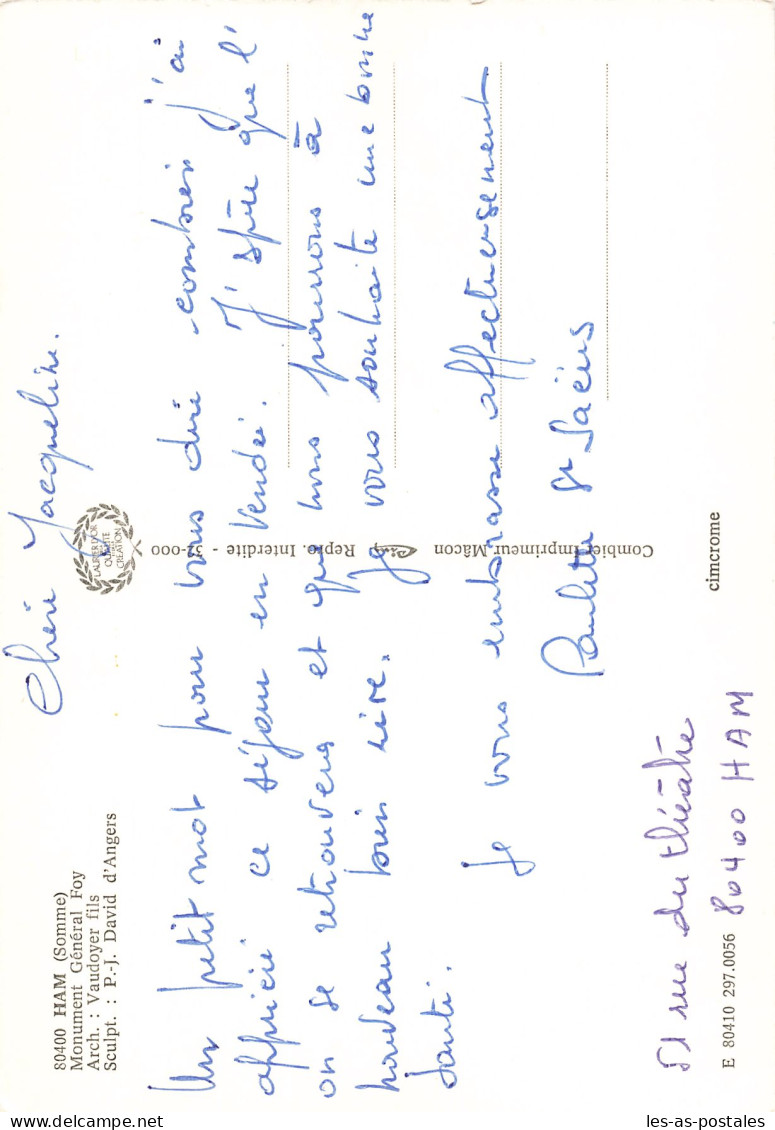 80400 HAM (Somme)
Monument Général Foy
Arch. : Vaudoyer fils
Sculpt. : P.-J. David d'Angers
LAURIER D'OR
QUALITÉ
CRÉATION
Chère Jacqueline.
Un petit mot pour vous dire combien j'ai
apprécié ce séjour en Vendée. J'espère que l'
on se retrouvera et que nous pourrons à
nouveau bien rire. Je vous souhaite une bonne
santé.
Je vous embrasse affectueusement
Paulette St Saëns
51 rue du théâtre
80400 HAM
E 80410 297.0056
Combier Imprimeur Mâcon
Repro. Interdite - 32-000
cimcrome
les-as-postales